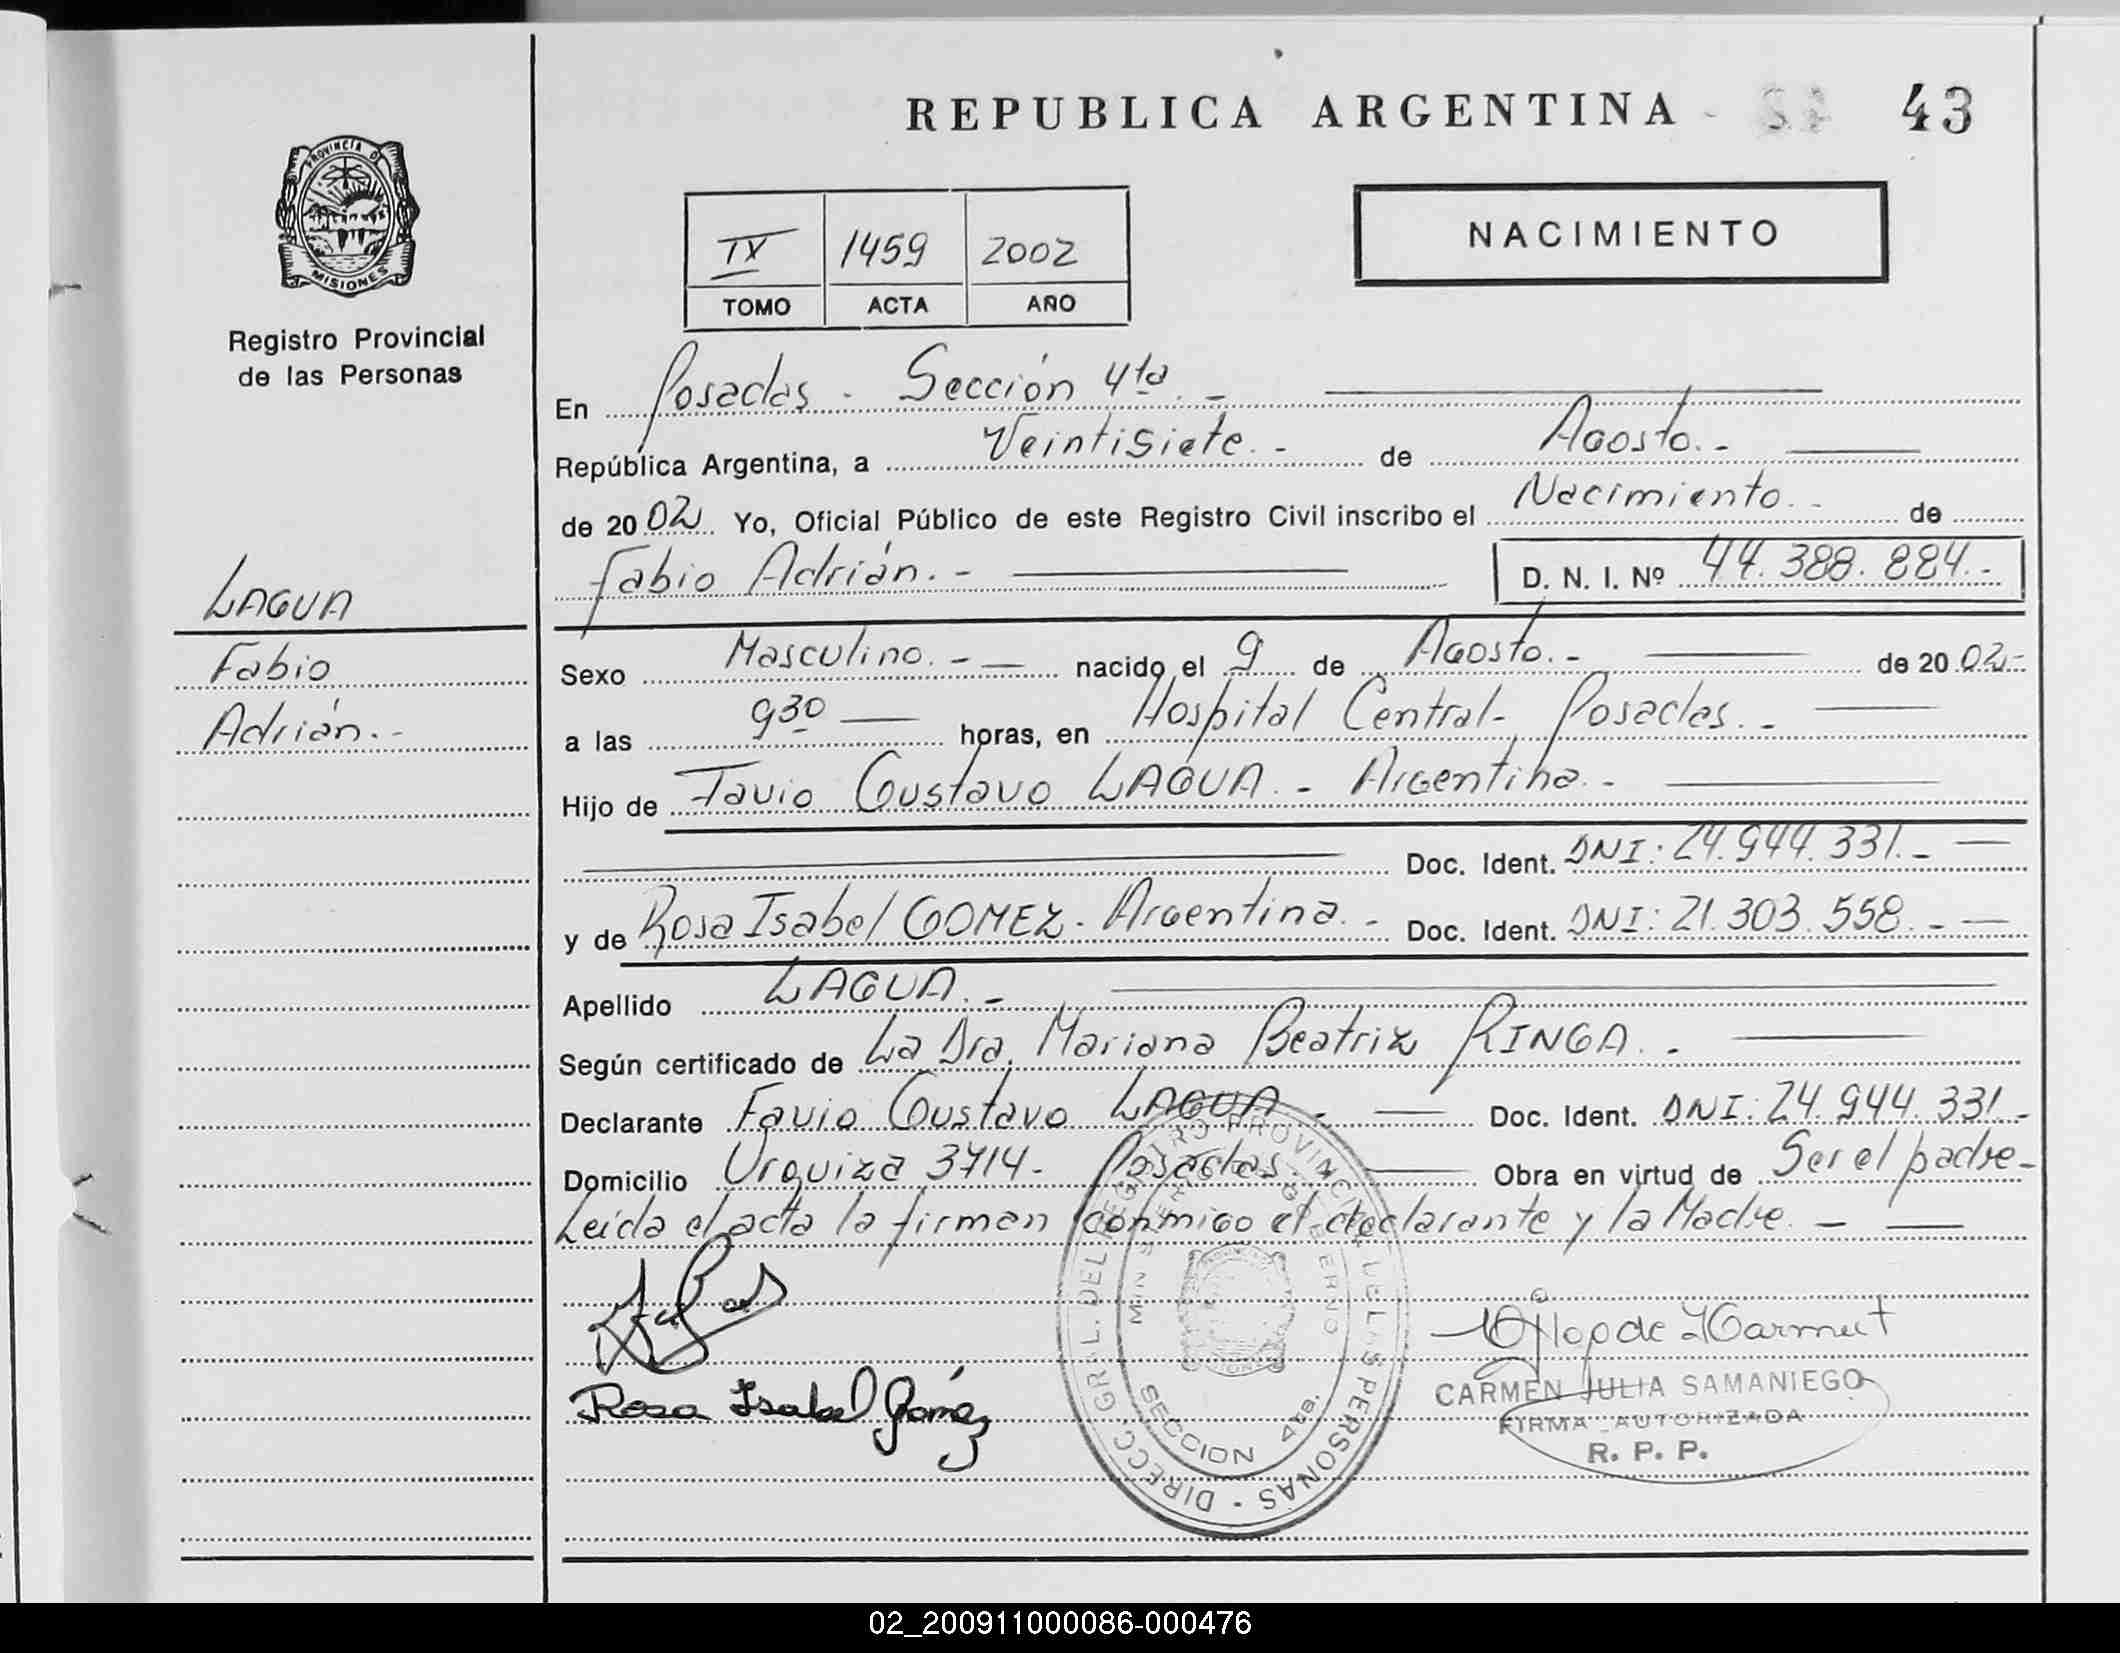 REPUBLICA ARGENTINA 43
PROVINCIA DE
MISIONES
Registro Provincial
de las Personas
IX 1459 2002
TOMO ACTA AÑO
NACIMIENTO
En Posadas - Sección 4ta. -
República Argentina, a Veintisiete. - de Agosto. -
de 2002 Yo, Oficial Público de este Registro Civil inscribo el Nacimiento. - de
Fabio Adrián. - D. N. I. Nº 44.388.884. -
LAGUA
Fabio
Adrián. -
Sexo Masculino. - nacido el 9 de Agosto. - de 2002. -
a las 9 30 horas, en Hospital Central - Posadas. -
Hijo de Favio Gustavo LAGUA. - Argentina. -
Doc. Ident. DNI: 24.944.331. -
y de Rosa Isabel GOMEZ - Argentina. - Doc. Ident. DNI: 21.303.558. -
Apellido LAGUA. -
Según certificado de La Dra. Mariana Beatriz RINGA. -
Declarante Favio Gustavo LAGUA - Doc. Ident. DNI: 24.944.331 -
Domicilio Urquiza 3714 - Posadas. Obra en virtud de Ser el padre -
Leída el acta la firman conmigo el declarante y la Madre. -
Rosa Isabel Gómez
DIRECC. GRAL. DEL REGISTRO PROVINCIAL DE LAS PERSONAS
MINISTERIO DE GOBIERNO
SECCION 4ta.
CARMEN JULIA SAMANIEGO
FIRMA AUTORIZADA
R. P. P.
02_200911000086-000476